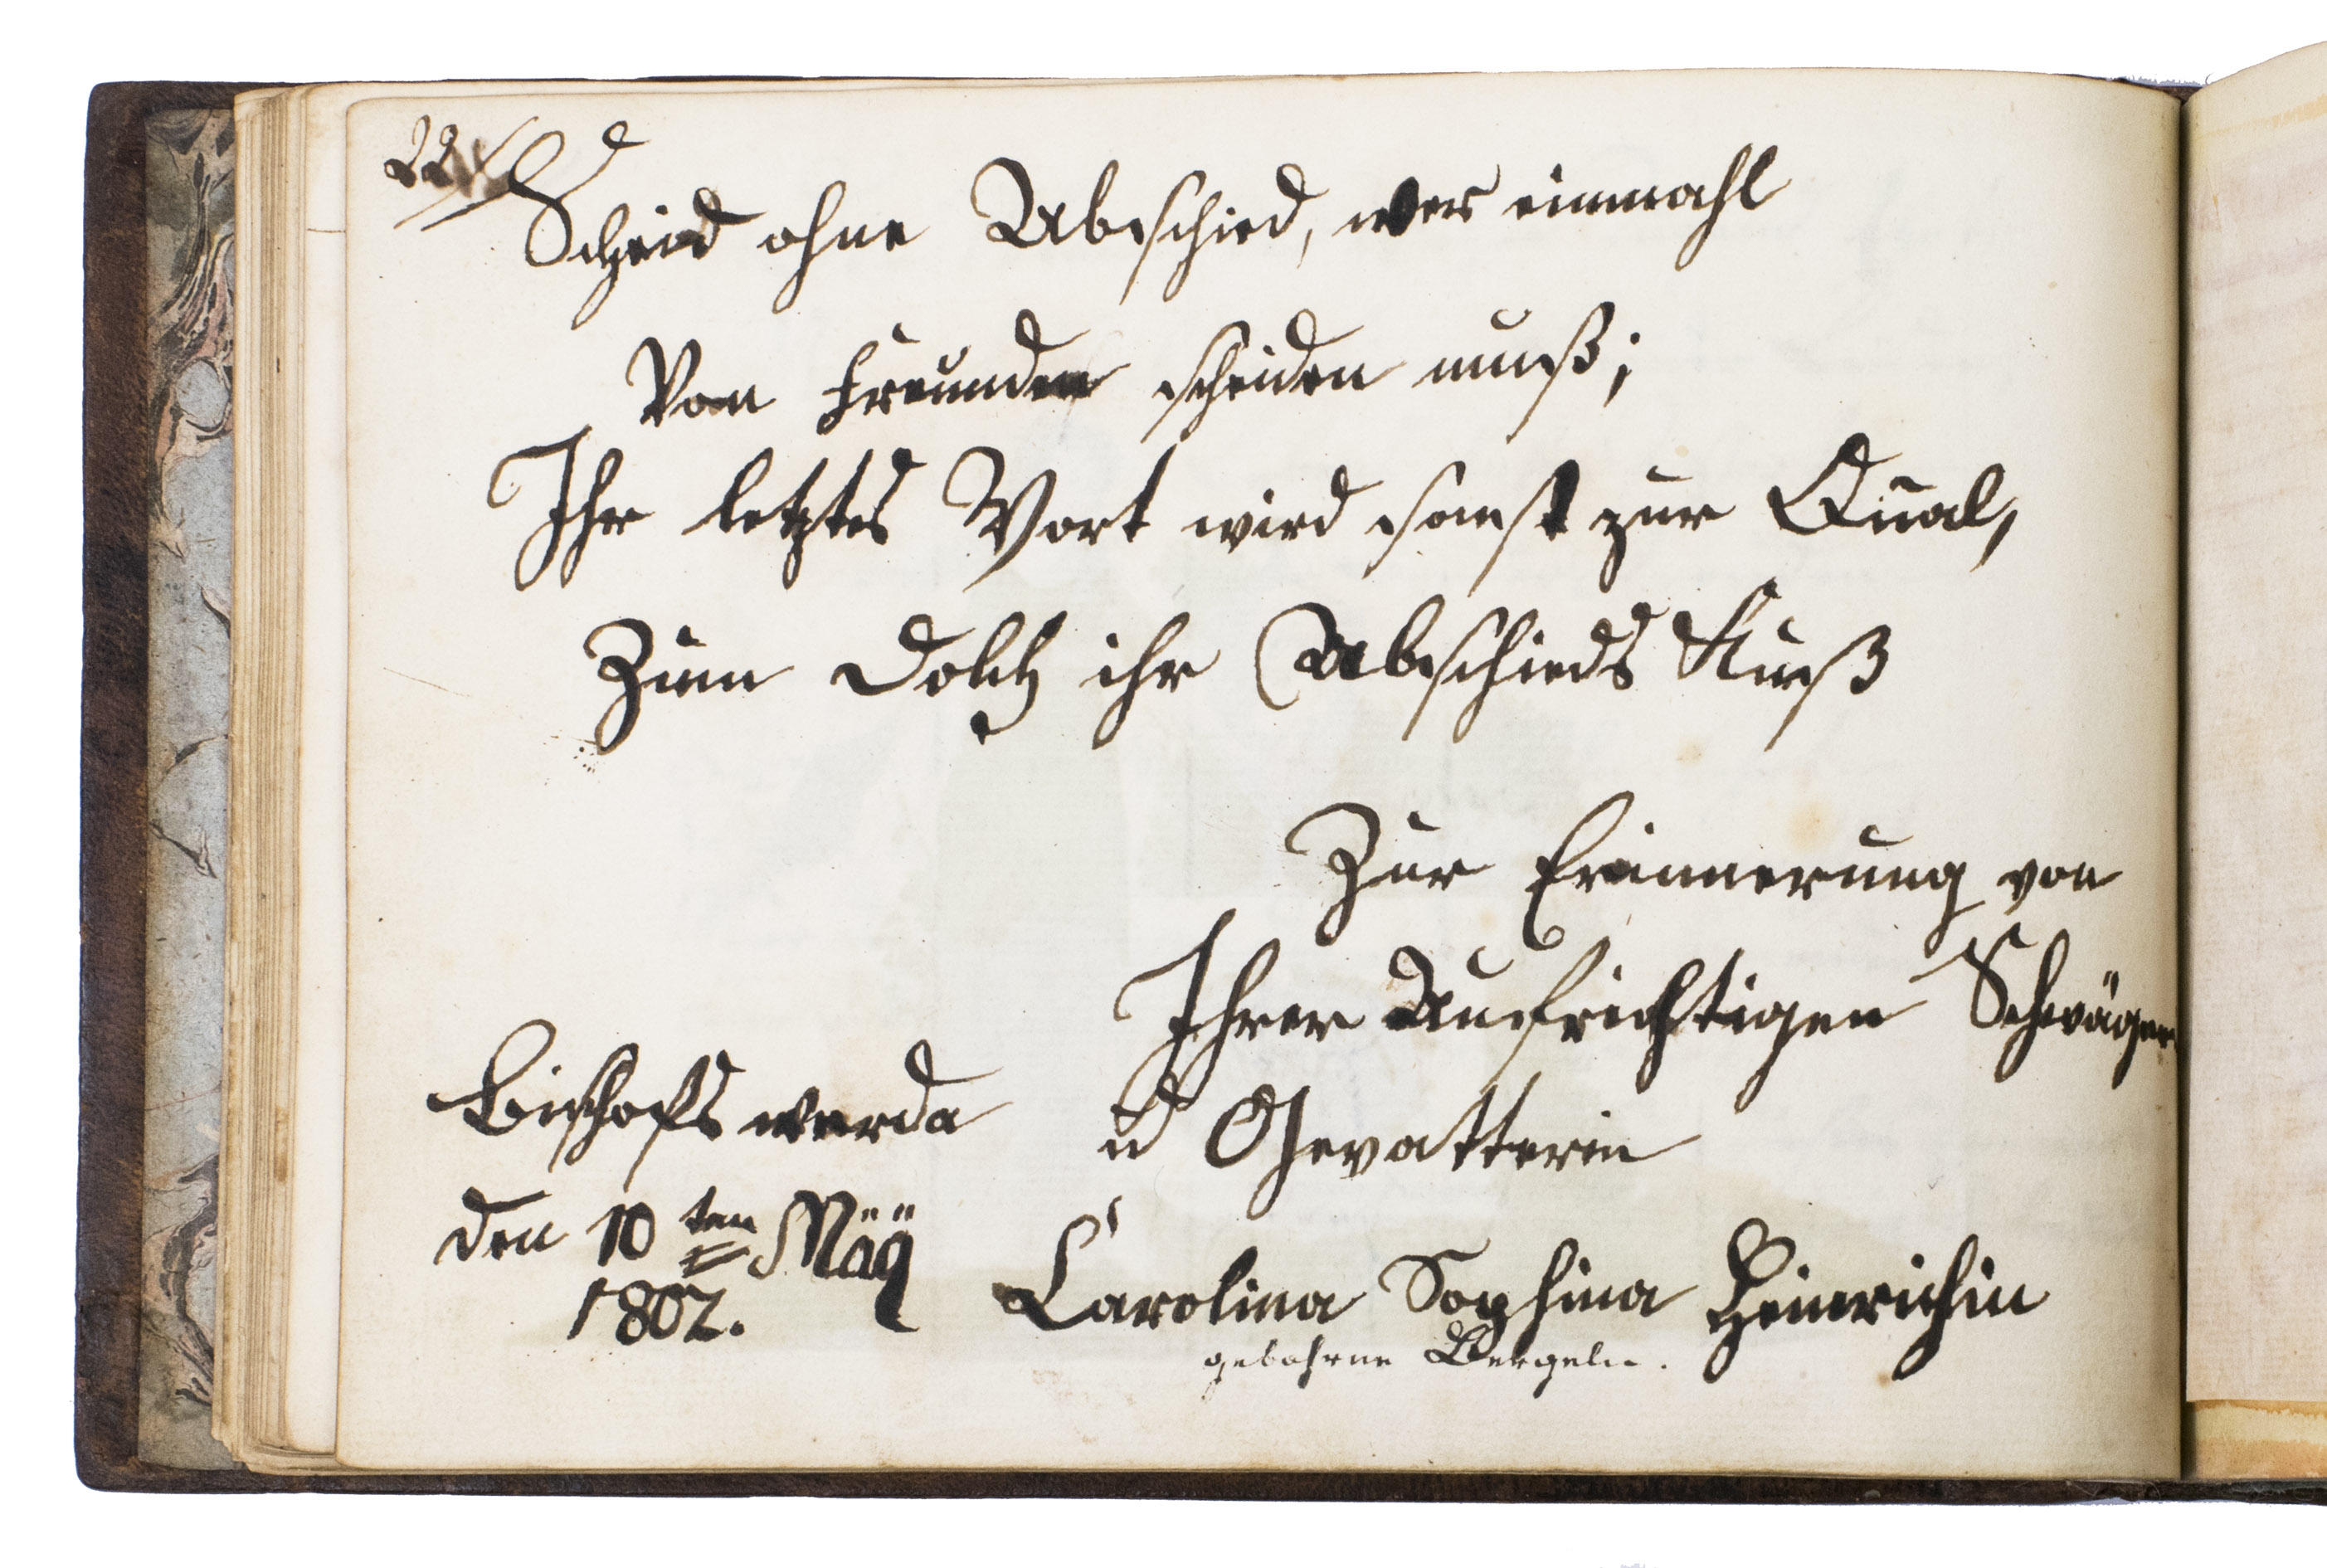 22
Scheid ohne Abschied, wer einmahl
Von Freunden scheiden muß;
Ihr letztes Wort wird sonst zur Qual,
Zum Dolch ihr Abschieds Kuß
Zur Erinnerung von
Ihrer Aufrichtigen Schwägerin
u Gevatterin
Bischofs werda
den 10ten Mäÿ
1802.
Carolina Sophina Heinrichin
gebohrne